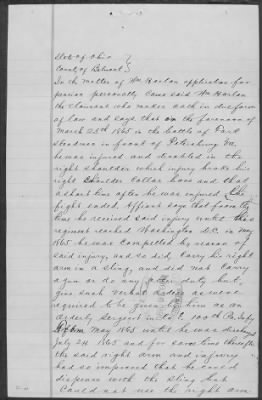 State of Ohio }
County of Belmont }
In the matter of Wm Harlan application for
pension personally came said Wm Harlan
the claimant who makes oath in due form
of law and says that on the forenoon of
March 25th 1865 in the battle of Fort
Steadman in front of Petersburg Va
he was injured and disabled in the
right shoulder which injury broke his
right shoulder collar bone and that
a short time after he was injured the
fight ended, Affiant says that from the
time he received said injury until the
regiment reached Washington D.C. in May
1865 he was compelled by reason of
said injury, and so did, carry his right
arm in a sling, and did not carry
a gun or do any other duty but,
give such verbal orders as were
required to be given by him as an
orderly Sergeant in Co C, 100th Pa Infy
From May 1865 until he was discharged
July 24 1865 and for some time thereafter
the said right arm and injury
had so improved that he could
dispense with the sling but
could not use the right arm